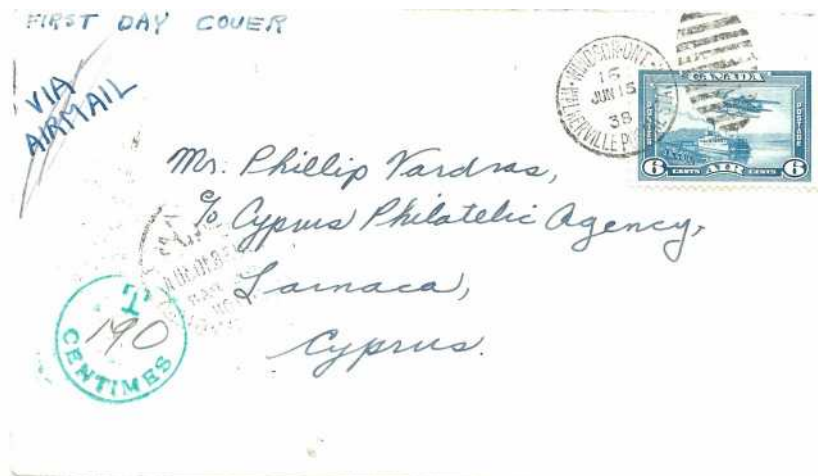 FIRST DAY COVER
VIA
AIRMAIL
WINDSOR·ONT·
16
JUN 15
38
WALKERVILLE
CANADA
POSTES
POSTAGE
6 CENTS AIR CENTS 6
Mr. Phillip Vardras,
c/o Cyprus Philatelic Agency,
Larnaca,
Cyprus.
T
190
CENTIMES